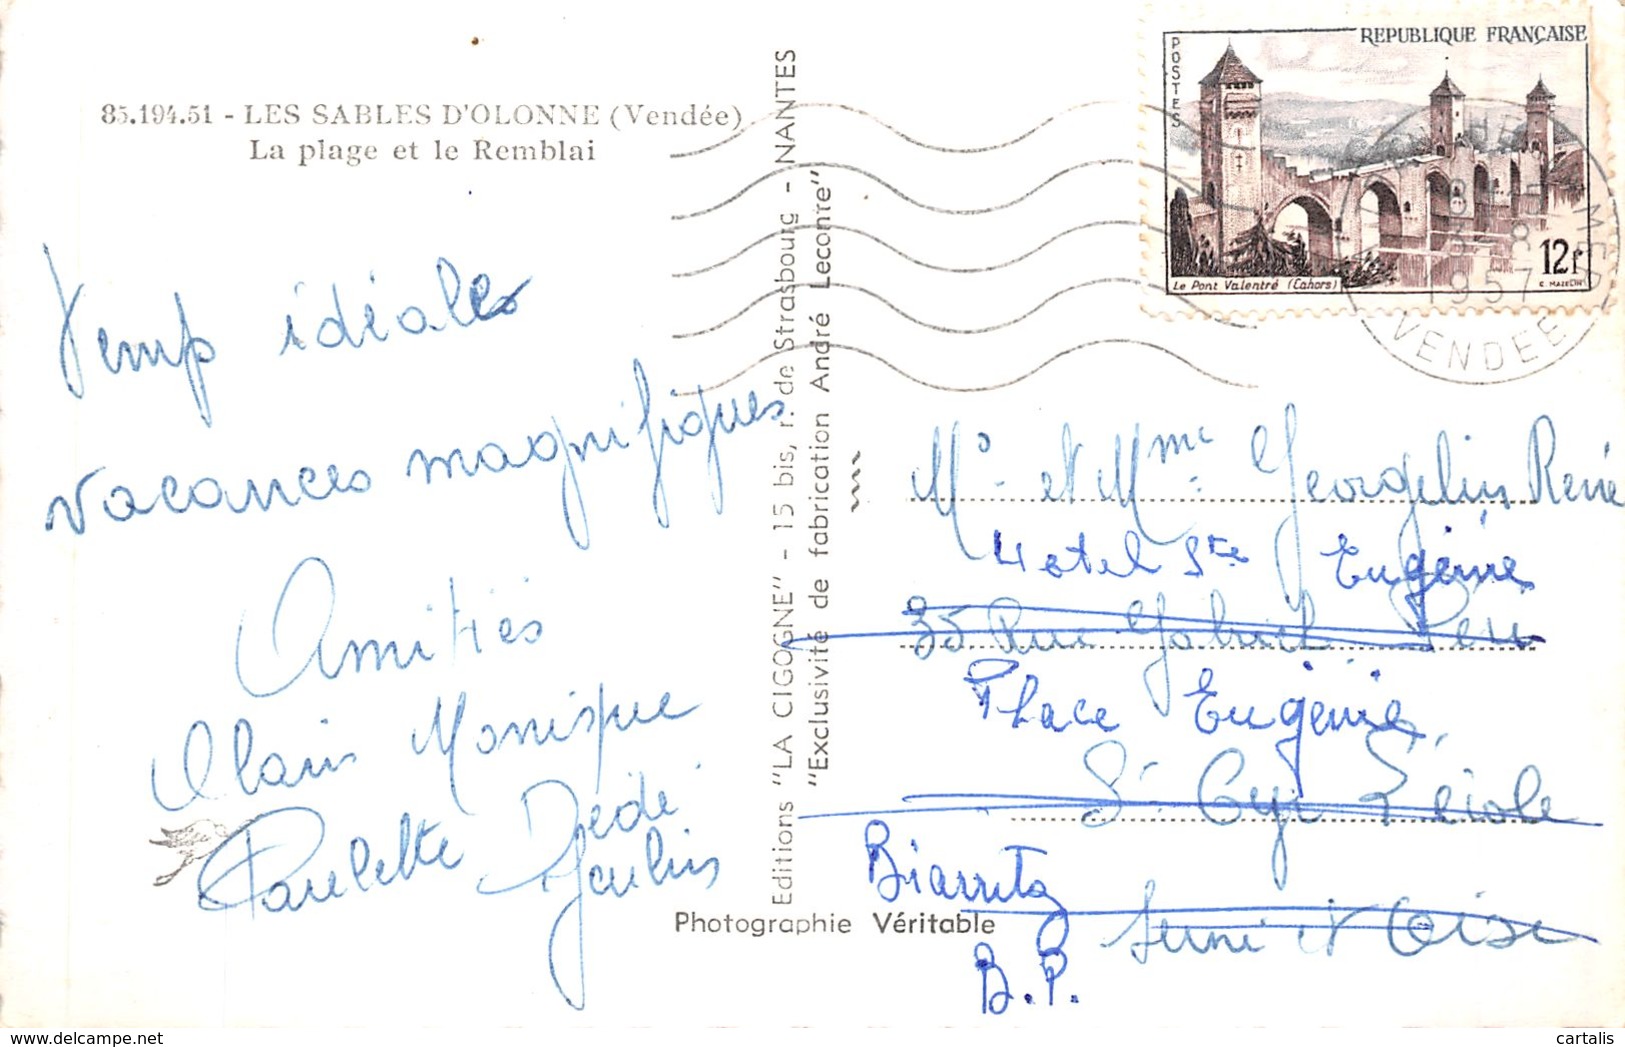 85.194.51 - LES SABLES D'OLONNE (Vendée)
La plage et le Remblai
Temp idéales
vacances magnifiques
Amitiés
Alain Monique
Paulette Dédé
Editions "LA CIGOGNE" - 15 bis, r. de Strasbourg - NANTES
"Exclusivité de fabrication André Leconte"
Photographie Véritable
POSTES
REPUBLIQUE FRANÇAISE
Le Pont Valentré (Cahors)
12F
C. MAZELIN
1957
VENDEE
Mr et Mme Georgelin René
Hotel Ste Eugénie
35 Rue Gabriel Peri
Place Eugénie
St Cyr l'école
Biarritz
Seine et Oise
B.P.
cartalis